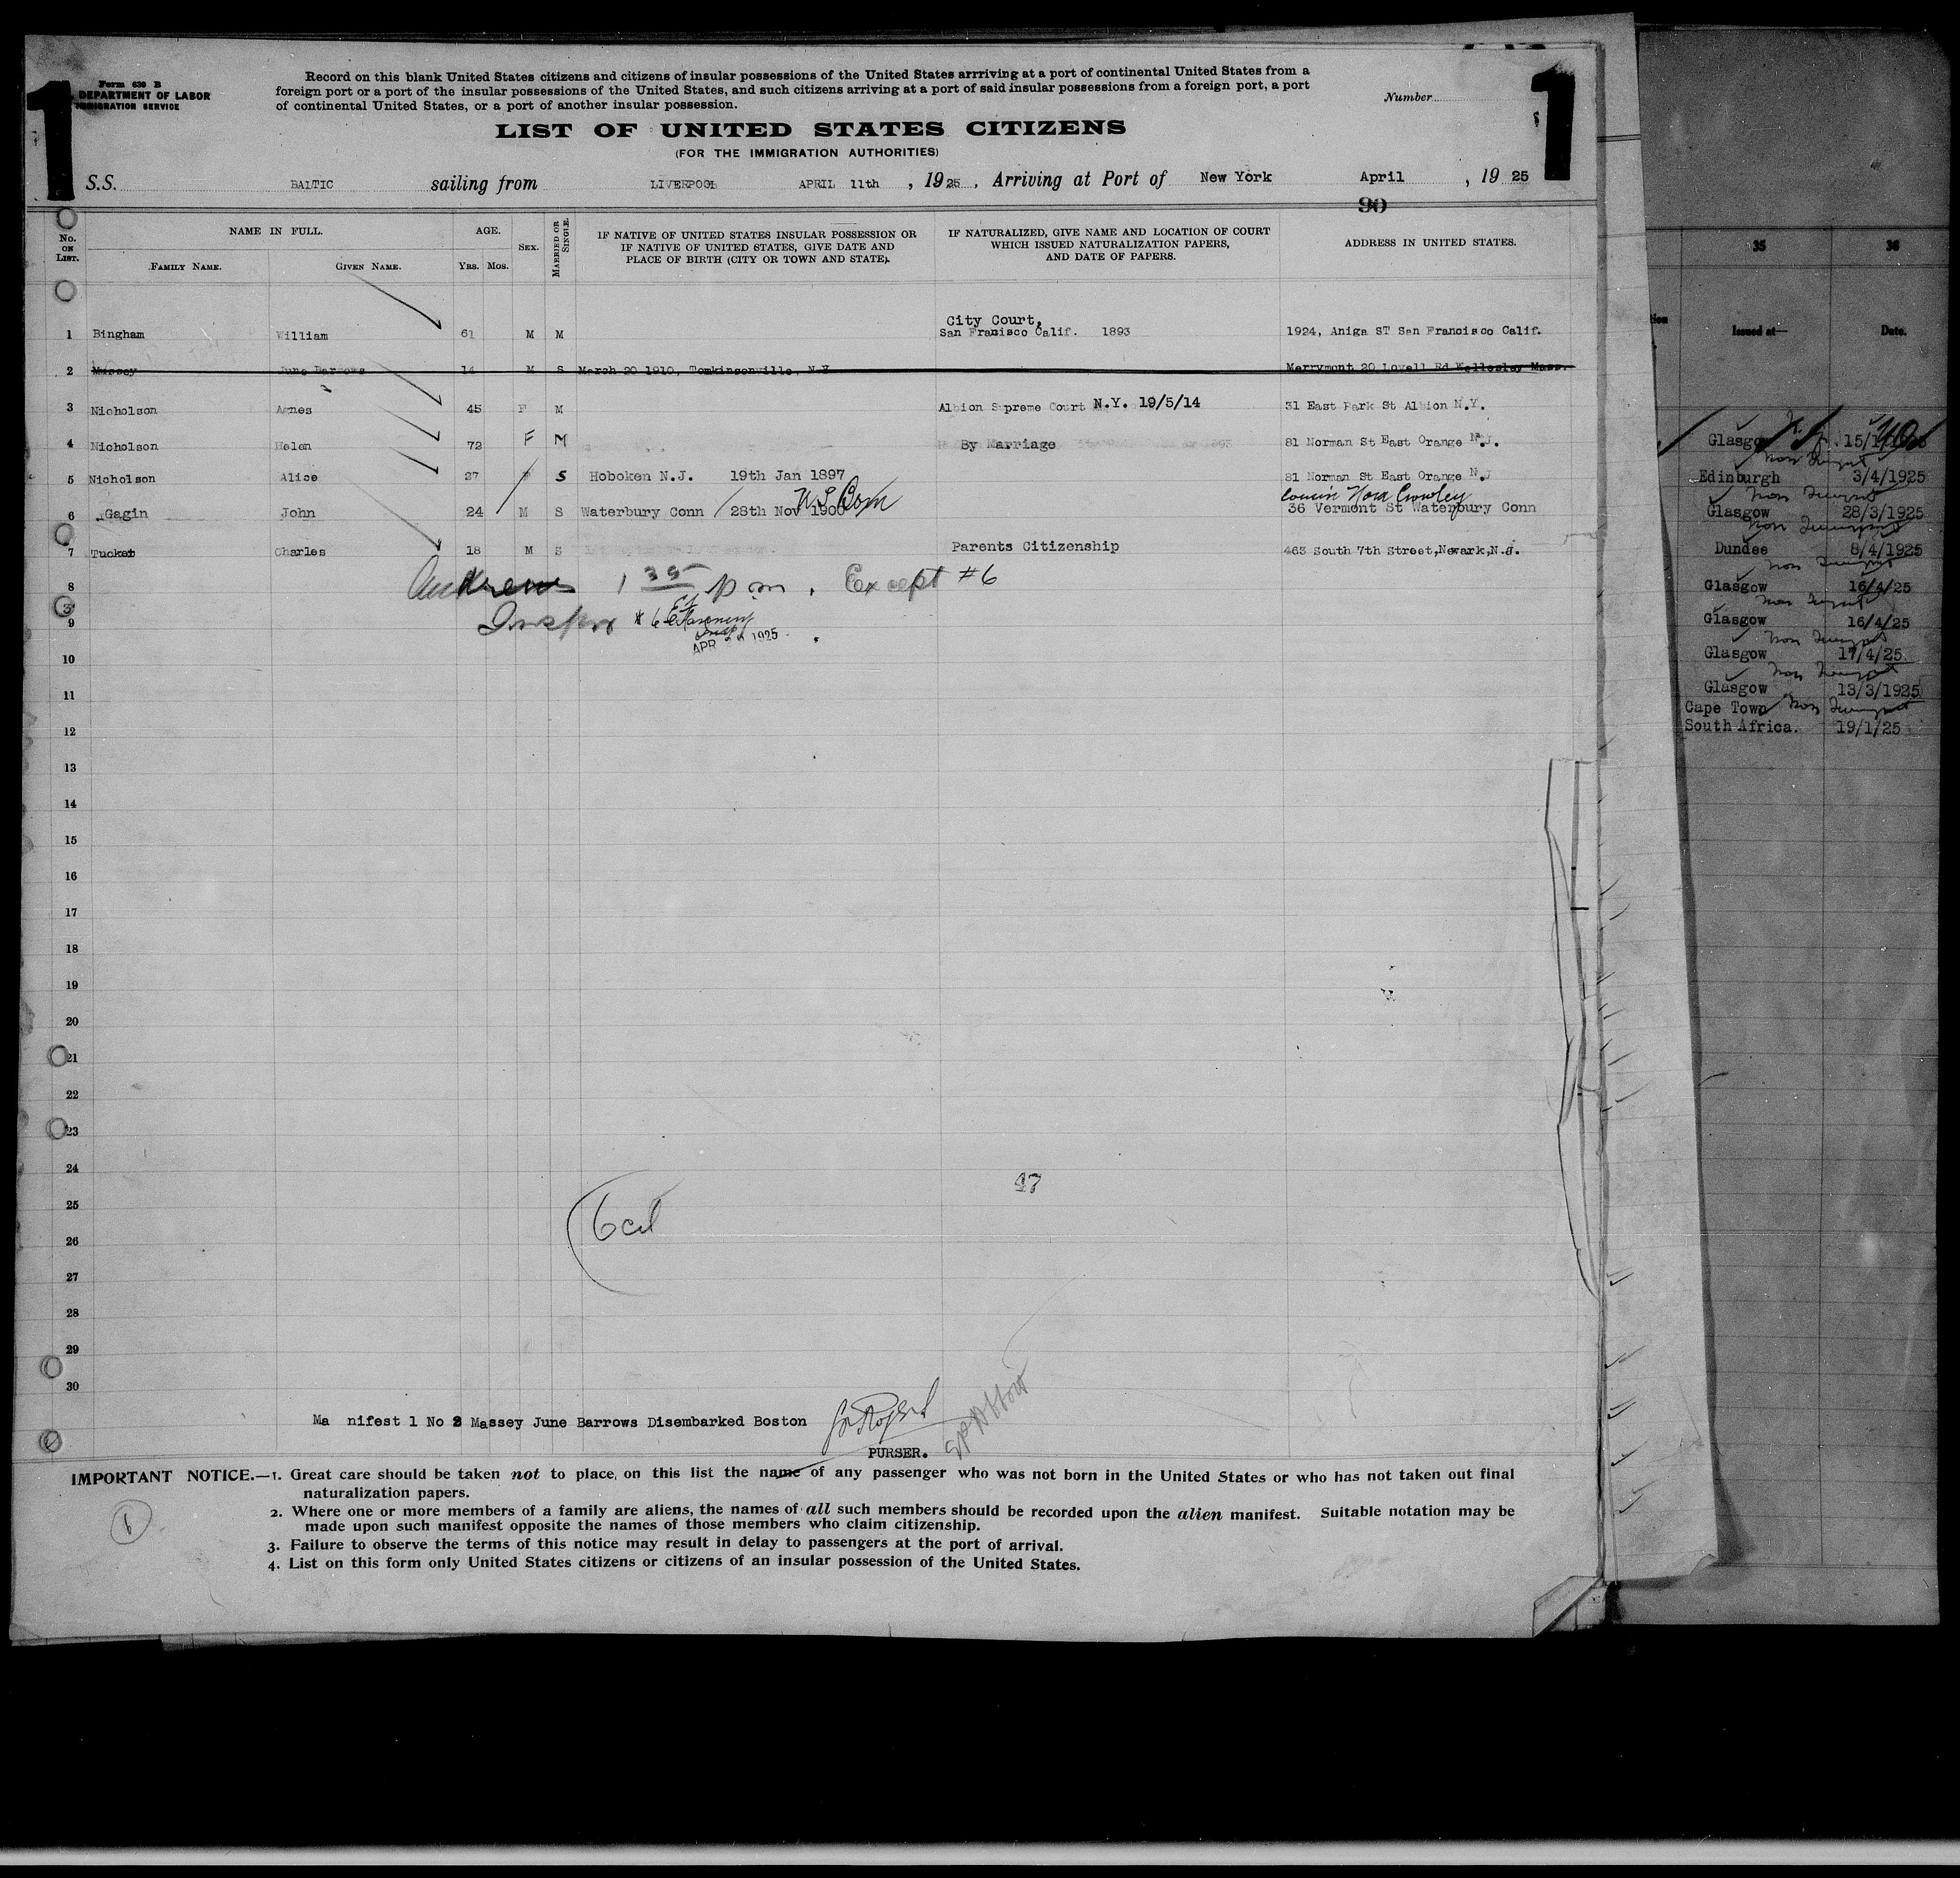 1
1
Form 630 B
DEPARTMENT OF LABOR
IMMIGRATION SERVICE
Record on this blank United States citizens and citizens of insular possessions of the United States arrriving at a port of continental United States from a
foreign port or a port of the insular possessions of the United States, and such citizens arriving at a port of said insular possessions from a foreign port, a port
of continental United States, or a port of another insular possession.
Number
LIST OF UNITED STATES CITIZENS
(FOR THE IMMIGRATION AUTHORITIES)
S.S. BALTIC sailing from LIVERPOOL APRIL 11th , 1925 , Arriving at Port of New York April , 19 25
90
No. ON LIST. NAME IN FULL. AGE. SEX. MARRIED OR SINGLE. IF NATIVE OF UNITED STATES INSULAR POSSESSION OR IF NATIVE OF UNITED STATES, GIVE DATE AND PLACE OF BIRTH (CITY OR TOWN AND STATE). IF NATURALIZED, GIVE NAME AND LOCATION OF COURT WHICH ISSUED NATURALIZATION PAPERS, AND DATE OF PAPERS. ADDRESS IN UNITED STATES.
FAMILY NAME. GIVEN NAME. YRS. MOS.
City Court,
1 Bingham William 61 M M San Francisco Calif. 1893 1924, Aniga ST San Francisco Calif.
2 Massey June Barrows 14 M S March 20 1910, Tomkinsonville, N.Y Merrymont 20 Lovell Rd Wellesley Mass.
3 Nicholson Agnes 45 F M Albion Supreme Court N.Y. 19/5/14 31 East Park St Albion N.Y.
4 Nicholson Helen 72 F M By Marriage 81 Norman St East Orange N.J.
5 Nicholson Alice 27 F S Hoboken N.J. 19th Jan 1897 81 Norman St East Orange N.J
US Born Cousin Nora Crowley
6 Gagin John 24 M S Waterbury Conn 28th Nov 1900 36 Vermont St Waterbury Conn
7 Tucker Charles 18 M S Parents Citizenship 463 South 7th Street, Newark, N.J.
8 Andrews 1 35 pm. Except #6
9 Inspr #6
APR 1925
10
11
12
13
14
15
16
17
18
19
20
21
22
23
24
97
25
6 cit
26
27
28
29
30
Ma nifest 1 No 2 Massey June Barrows Disembarked Boston
PURSER.
IMPORTANT NOTICE.—1. Great care should be taken not to place, on this list the name of any passenger who was not born in the United States or who has not taken out final
naturalization papers.
2. Where one or more members of a family are aliens, the names of all such members should be recorded upon the alien manifest. Suitable notation may be
made upon such manifest opposite the names of those members who claim citizenship.
3. Failure to observe the terms of this notice may result in delay to passengers at the port of arrival.
4. List on this form only United States citizens or citizens of an insular possession of the United States.
6
35 36
Issued at— Date.
Glasgow
Edinburgh 3/4/1925
Glasgow 28/3/1925
Dundee 8/4/1925
Glasgow 16/4/25
Glasgow 16/4/25
Glasgow 17/4/25
Glasgow 13/3/1925
Cape Town
South Africa. 19/1/25